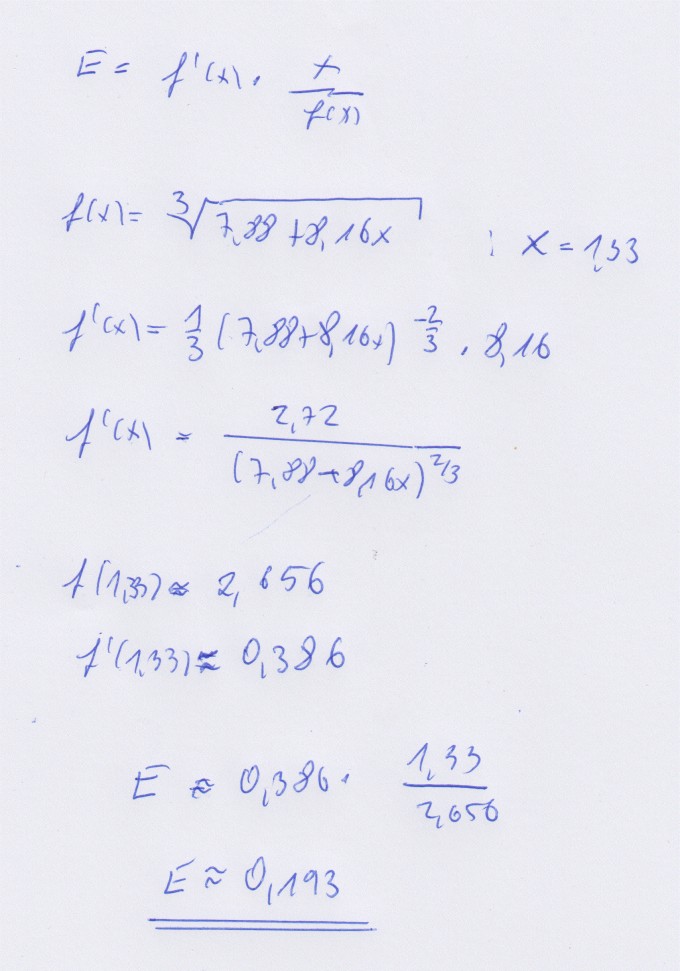 E = f'(x) · x / f(x)
f(x) = ∛(7,88 + 8,16x) ; x = 1,33
f'(x) = 1/3 (7,88 + 8,16x)^(-2/3) · 8,16
f'(x) = 2,72 / (7,88 + 8,16x)^(2/3)
f(1,33) ≈ 2,656
f'(1,33) ≈ 0,386
E ≈ 0,386 · 1,33 / 2,656
E ≈ 0,193